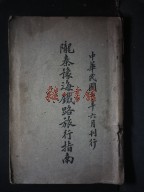 中華民國年六月刊行
隴秦豫海鐵路旅行指南